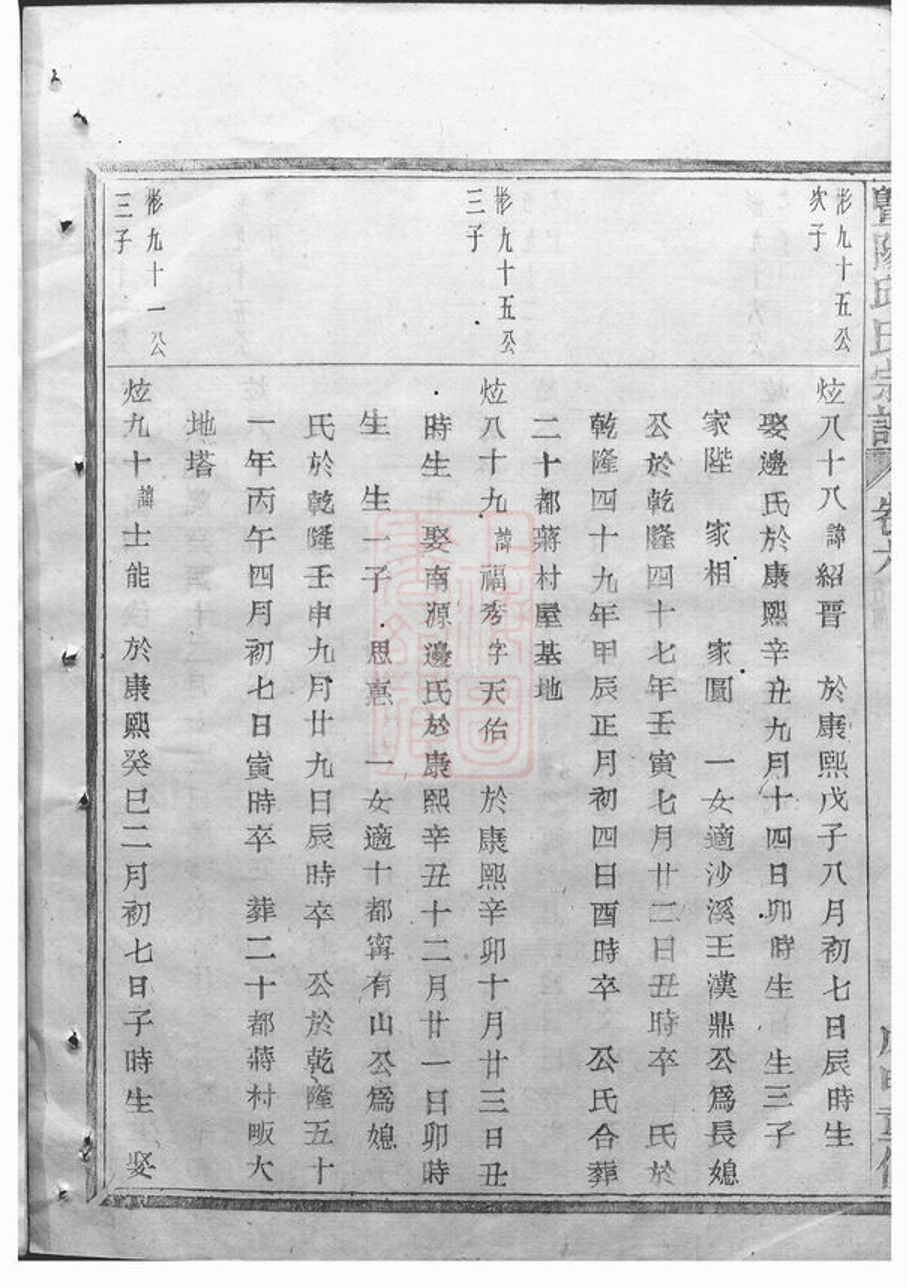 暨陽邱氏宗譜 卷六
彬九十五公
次子
炫八十八諱紹晋 於康熙戊子八月初七日辰時生
娶邊氏於康熙辛丑九月十四日卯時生 生三子
家陛 家相 家圓 一女適沙溪王漢鼎公為長媳
公於乾隆四十七年壬寅七月廿二日丑時卒 氏於
乾隆四十九年甲辰正月初四日酉時卒 公氏合葬
二十都蔣村屋基地
彬九十五公
三子
炫八十九諱福秀字天佑 於康熙辛卯十月廿三日丑
時生 娶南源邊氏於康熙辛丑十二月廿一日卯時
生 生一子 思憲 一女適十都甯有山公為媳
氏於乾隆壬申九月廿九日辰時卒 公於乾隆五十
一年丙午四月初七日寅時卒 葬二十都蔣村畈大
地塔
彬九十一公
三子
炫九十諱士能 於康熙癸巳二月初七日子時生 娶